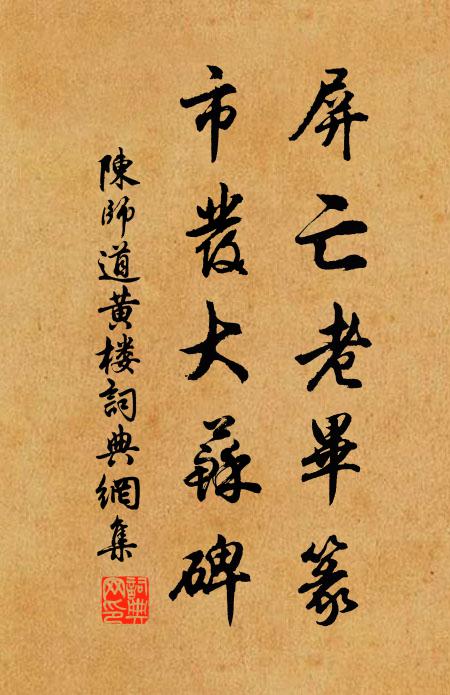 屏亡老畢篆
市發大蘇碑
陳師道黄楼詞典網集
詞典网印